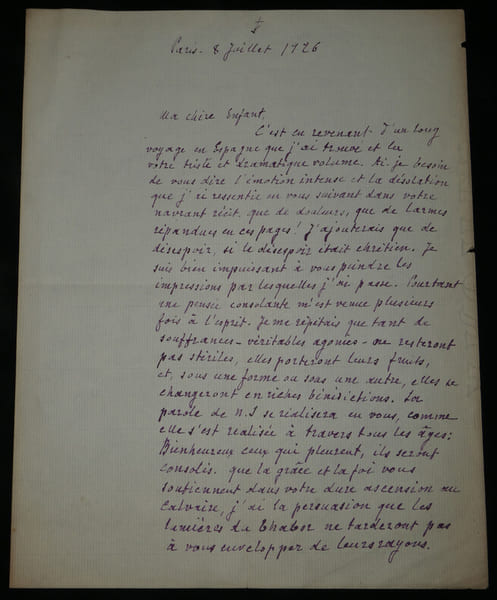 Paris - 8 Juillet 1926
Ma chère Enfant,
C'est en revenant d'un long
voyage en Espagne que j'ai trouvé et lu
votre triste et dramatique volume. Ai-je besoin
de vous dire l'émotion intense et la désolation
que j'ai ressentie en vous suivant dans votre
navrant récit, que de douleurs, que de larmes
répandues en ces pages! J'ajouterais que de
désespoir, si le désespoir était chrétien. Je
suis bien impuissant à vous peindre les
impressions par lesquelles j'ai passé. Pourtant
une pensée consolante m'est venue plusieurs
fois à l'esprit. Je me répétais que tant de
souffrances - véritables agonies - ne resteront
pas stériles, elles porteront leurs fruits,
et, sous une forme ou sous une autre, elles se
changeront en riches bénédictions. La
parole de N.S se réalisera en vous, comme
elle s'est réalisée à travers tous les âges:
Bienheureux ceux qui pleurent, ils seront
consolés. que la grâce et la foi vous
soutiennent dans votre dure ascension au
Calvaire, j'ai la persuasion que les
lumières du Thabor ne tarderont pas
à vous envelopper de leurs rayons.